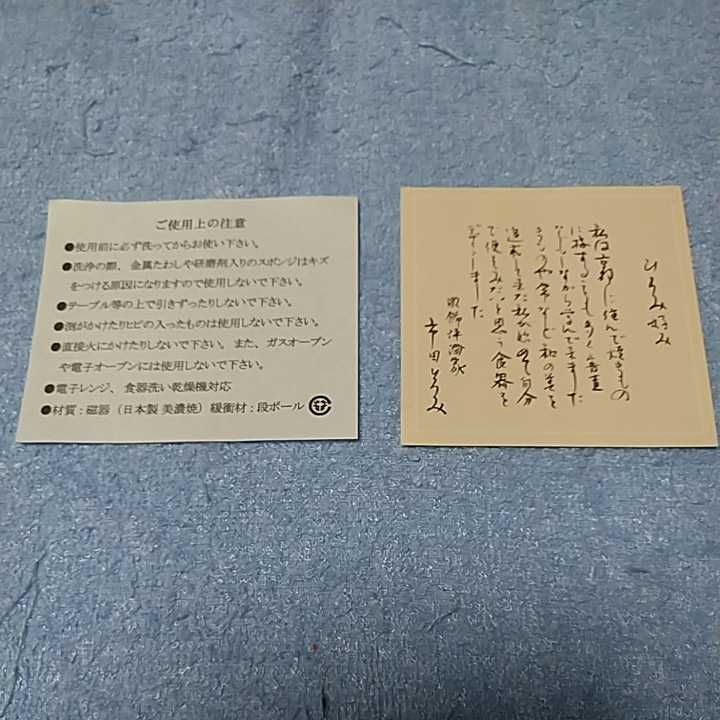 ご使用上の注意
●使用前に必ず洗ってからお使い下さい。
●洗浄の際、金属たわしや研磨剤入りのスポンジはキズ
をつける原因になりますので使用しないで下さい。
●テーブル等の上で引きずったりしないで下さい。
●割がかけたりヒビの入ったものは使用しないで下さい。
●直接火にかけたりしないで下さい。また、ガスオーブン
や電子オーブンには使用しないで下さい。
●電子レンジ、食器洗い乾燥機対応
●材質：磁器（日本製 美濃焼）緩衝材：段ボール
ひろみ好み
私は京都に住んで焼きもの
に接することも多く
ながら
や帯など和の美を
追求して来た私が始めて自分
で使ってみたいと思う食器を
デザインしました
服飾評論家
市田ひろみ